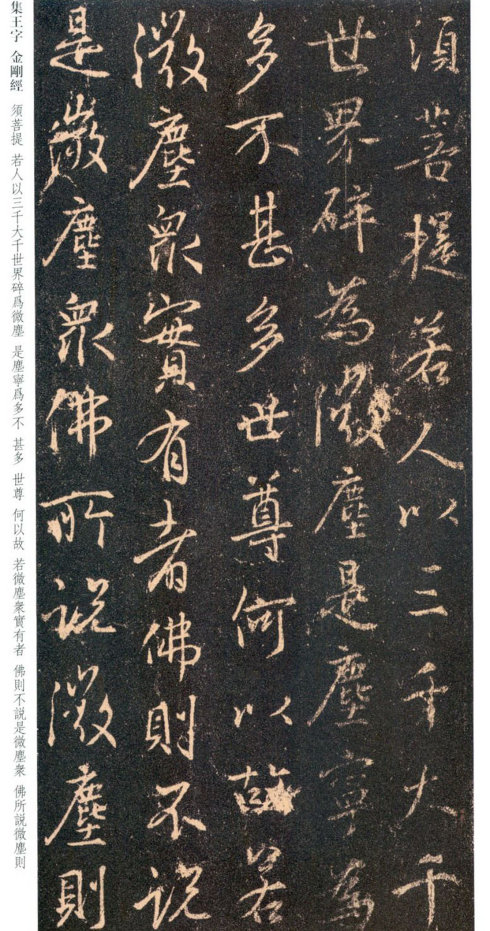 須菩提若人以三千大千
世界碎為微塵是塵寧為
多不甚多世尊何以故若
微塵眾實有者佛則不說
是微塵眾佛所說微塵則
集王字 金剛經 須菩提 若人以三千大千世界碎爲微塵 是塵寧爲多不 甚多 世尊 何以故 若微塵衆實有者 佛則不說是微塵衆 佛所說微塵則